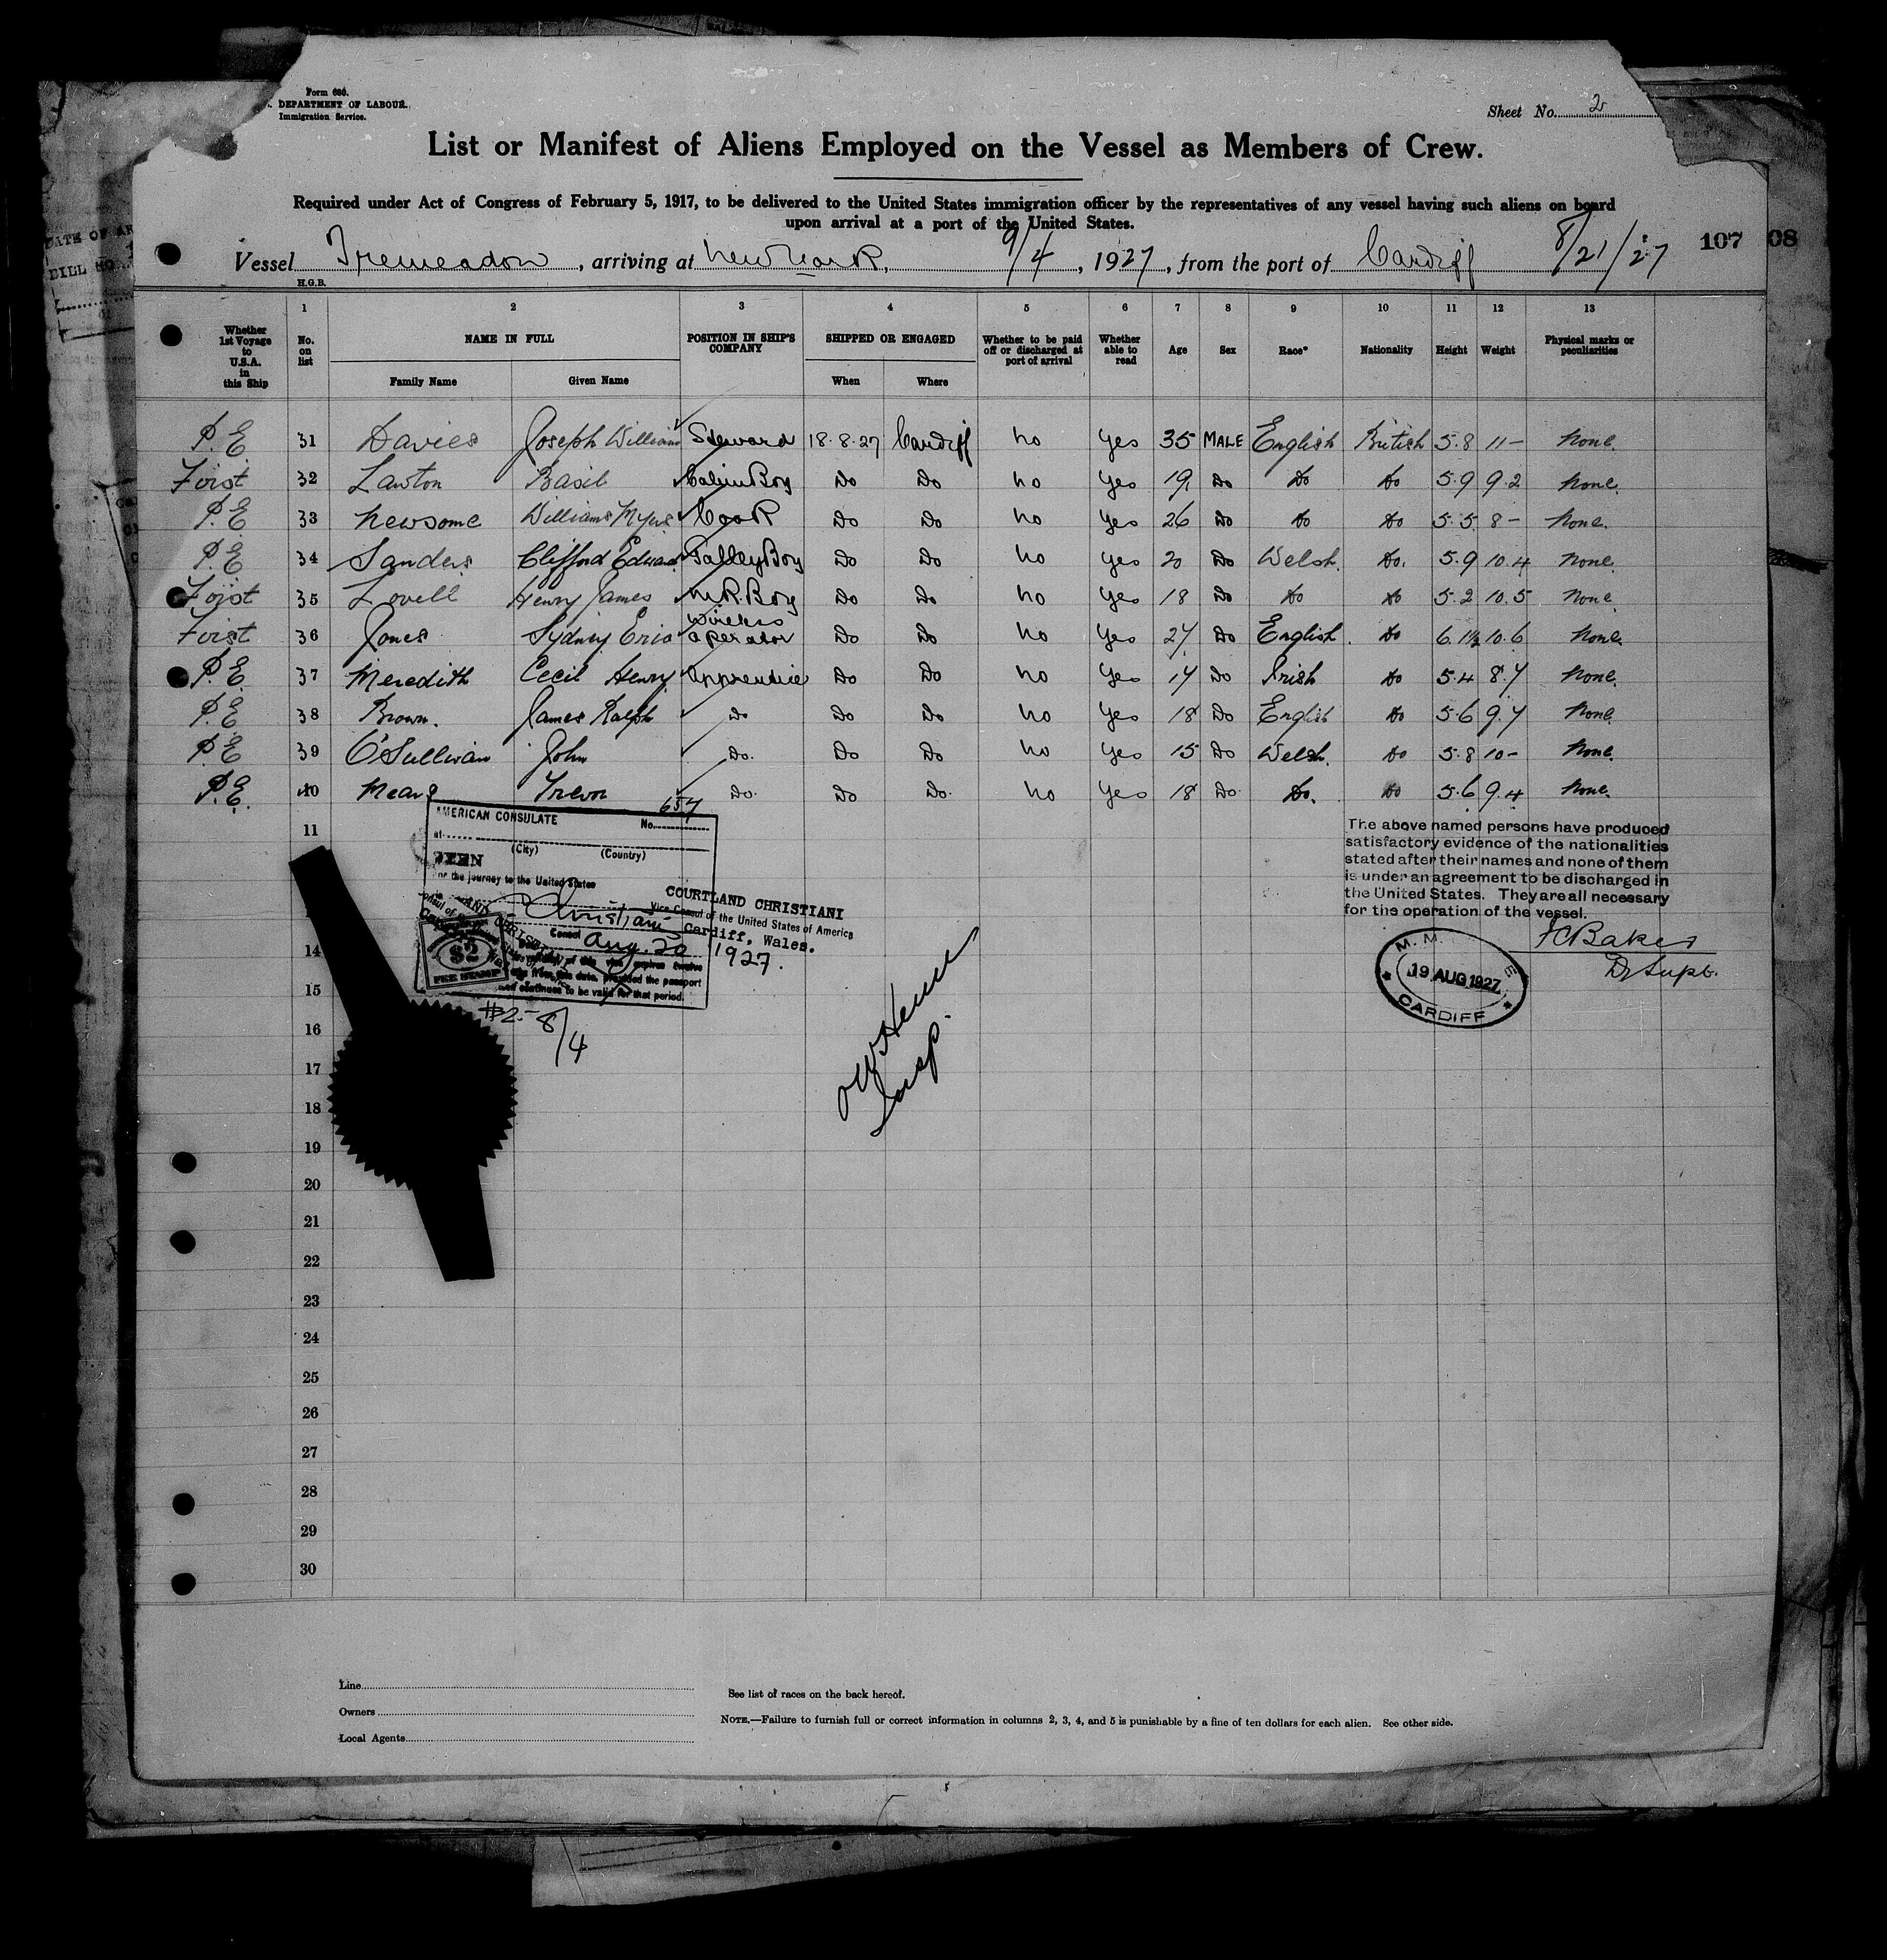 Form 680.
DEPARTMENT OF LABOUR.
Immigration Service.
Sheet No. 2
List or Manifest of Aliens Employed on the Vessel as Members of Crew.
Required under Act of Congress of February 5, 1917, to be delivered to the United States immigration officer by the representatives of any vessel having such aliens on board
upon arrival at a port of the United States.
Vessel Tremeadow, arriving at New York, 9/4, 1927, from the port of Cardiff 8/21/27
107 08
H.G.B.
1 2 3 4 5 6 7 8 9 10 11 12 13
Whether 1st Voyage to U.S.A. in this Ship No. on list NAME IN FULL POSITION IN SHIP'S COMPANY SHIPPED OR ENGAGED Whether to be paid off or discharged at port of arrival Whether able to read Age Sex Race* Nationality Height Weight Physical marks or peculiarities
Family Name Given Name When Where
P.E 31 Davies Joseph William Steward 18.8.27 Cardiff no yes 35 MALE English British 5.8 11- none.
First 32 Lawton Basil Cabin Boy Do Do no yes 19 Do Do Do 5.9 9.2 none.
P.E 33 Newsome Williams Myers Cook Do Do no yes 26 Do Do Do 5.5 8- none.
P.E 34 Sanders Clifford Edward Galley Boy Do Do no yes 20 Do Welsh. Do. 5.9 10.4 none.
First 35 Lovell Henry James M.R. Boy Do Do no yes 18 Do Do Do 5.2 10.5 none
First 36 Jones Sydney Eric Wireless Operator Do Do no yes 27 Do English. Do 6.1½ 10.6 none.
P.E. 37 Meredith Cecil Henry Apprentice Do Do no yes 17 Do Irish Do 5.4 8.7 none.
P.E 38 Brown. James Ralph Do Do Do no yes 18 Do English Do 5.6 9.7 none.
P.E 39 O'Sullivan John Do. Do Do no yes 15 Do Welsh. Do 5.8 10- none.
P.E. 40 Trevor Do. Do Do. no yes 18 Do. Do. Do 5.6 9.4 none.
11
AMERICAN CONSULATE No. 657
at
(City) (Country)
SEEN
for the journey to the United States
Christiani
Consul
Aug. 20 1927.
COURTLAND CHRISTIANI
Vice Consul of the United States of America
Cardiff, Wales.
$2
FEE STAMP
of this visa expires twelve
from this date, provided the passport
continues to be valid for that period.
#2.- 8/4
The above named persons have produced
satisfactory evidence of the nationalities
stated after their names and none of them
is under an agreement to be discharged in
the United States. They are all necessary
for the operation of the vessel.
Baker
D/Supt.
M. M.
19 AUG 1927
CARDIFF
Insp.
14
15
16
17
18
19
20
21
22
23
24
25
26
27
28
29
30
Line
Owners
Local Agents
See list of races on the back hereof.
NOTE.—Failure to furnish full or correct information in columns 2, 3, 4, and 5 is punishable by a fine of ten dollars for each alien. See other side.